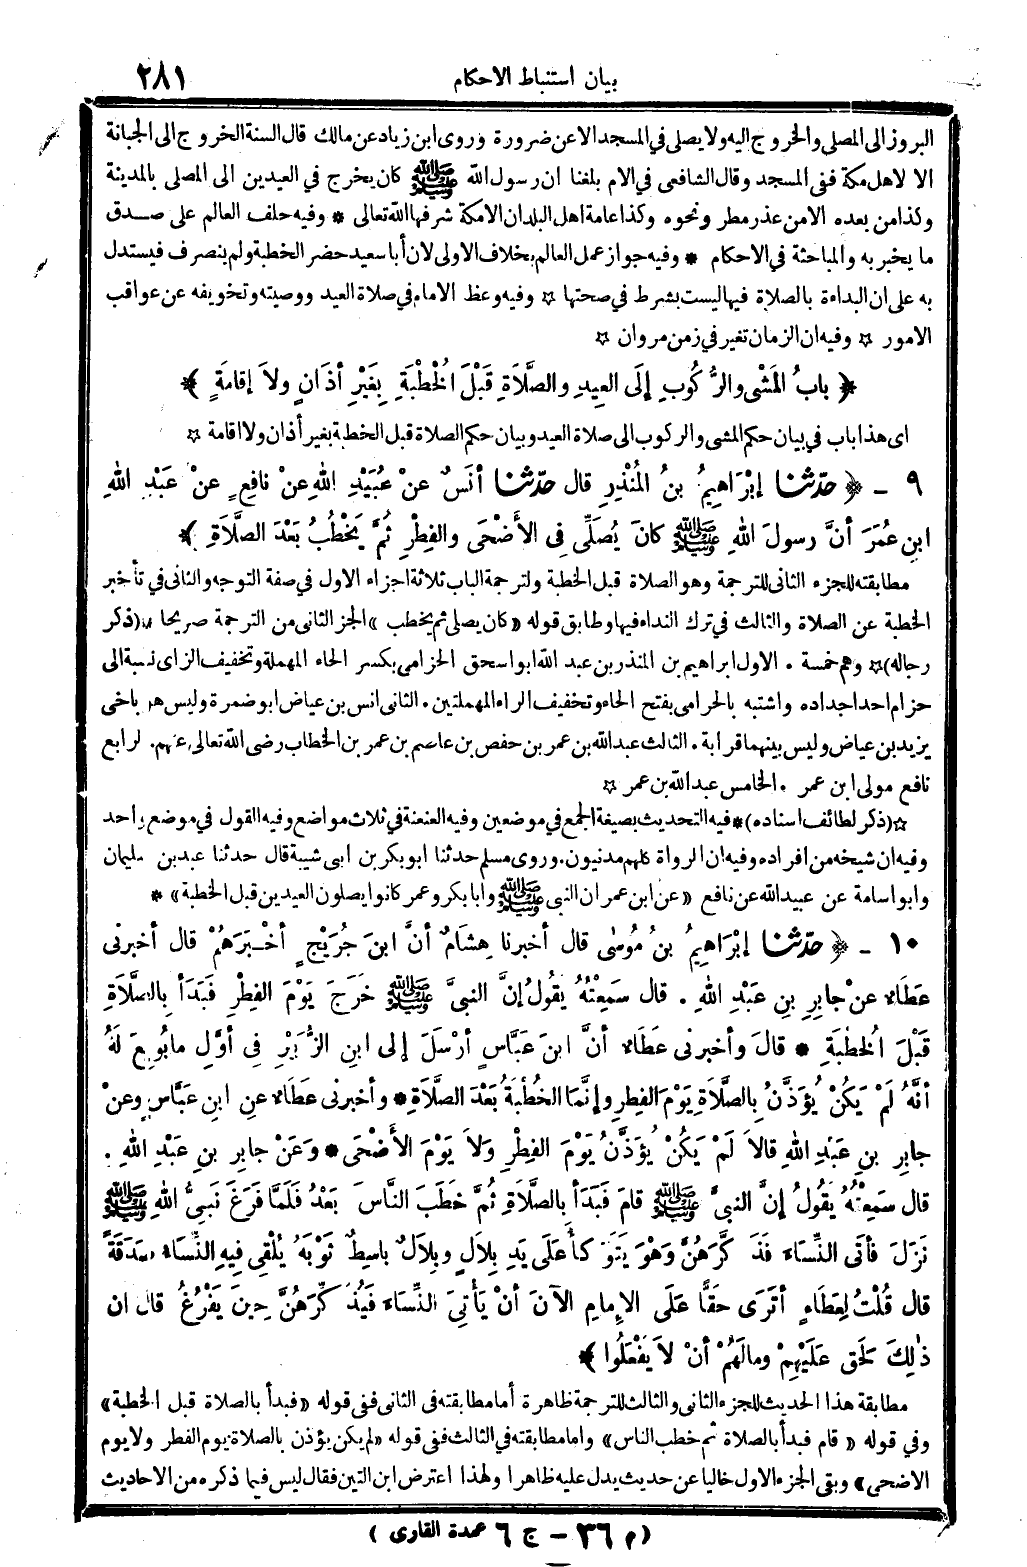 بيان استنباط الاحكام ٢٨١
البروز الى المصلى والخروج اليه ولا يصلى في المسجد الا عن ضرورة وروى ابن زياد عن مالك قال السنة الخروج الى الجبانة
الا لاهل مكة ففى المسجد وقال الشافعى في الام بلغنا ان رسول الله ﷺ كان يخرج في العيدين الى المصلى بالمدينة
وكذا من بعده الا من عذر مطر ونحوه وكذا عامة اهل البلدان الا مكة شرفها الله تعالى * وفيه حلف العالم على صدق
ما يخبر به والمباحثة في الاحكام * وفيه جواز عمل العالم بخلاف الاولى لان أبا سعيد حضر الخطبة ولم ينصرف فيستدل
به على ان البداءة بالصلاة فيها ليست بشرط في صحتها ☆ وفيه وعظ الامام في صلاة العيد ووصيته وتخويفه عن عواقب
الامور ☆ وفيه ان الزمان تغير في زمن مروان ☆
﴿ بابُ المَشْىِ والرُّكُوبِ إلَى العِيدِ والصَّلَاةِ قَبْلَ الخُطْبَةِ بِغَيْرِ أذَانٍ ولاَ إقامَةٍ ﴾
اى هذا باب في بيان حكم المشى والركوب الى صلاة العيد وبيان حكم الصلاة قبل الخطبة بغير أذان ولا اقامة ☆
٩ ـ ﴿ حدّثنا إبْرَاهِيمُ بنُ المُنْذِرِ قال حدّثنا أنَسٌ عنْ عُبَيْدِ اللهِ عنْ نافِعٍ عنْ عَبْدِ اللهِ
ابنِ عُمَرَ أنَّ رسولَ اللهِ ﷺ كانَ يُصَلِّى فِى الأضْحَى والفِطْرِ ثُمَّ يَخْطُبُ بَعْدَ الصَّلَاةِ ﴾
مطابقته للجزء الثانى للترجمة وهو الصلاة قبل الخطبة ولترجمة الباب ثلاثة اجزاء الاول في صفة التوجه والثانى في تأخير
الخطبة عن الصلاة والثالث في ترك النداء فيها وطابق قوله «كان يصلى ثم يخطب» الجز الثانى من الترجمة صريحا ☆(ذكر
رجاله)☆ وهم خمسة . الاول ابراهيم بن المنذر بن عبد الله ابو اسحق الحزامى بكسر الحاء المهملة وتخفيف الزاى نسبة الى
حزام احد اجداده واشتبه بالحرامى بفتح الحاء وتخفيف الراء المهملتين . الثانى انس بن عياض ابو ضمرة وليس هو باخى
يزيد بن عياض وليس بينهما قرابة . الثالث عبد الله بن عمر بن حفص بن عاصم بن عمر بن الخطاب رضى الله تعالى عنهم. لرابع
نافع مولى ابن عمر . الخامس عبد الله بن عمر ☆
☆(ذكر لطائف اسناده)* فيه التحديث بصيغة الجمع في موضعين وفيه العنعنة في ثلاث مواضع وفيه القول في موضع واحد
وفيه ان شيخه من افراده وفيه ان الرواة كلهم مدنيون. وروى مسلم حدثنا ابو بكر بن ابى شيبة قال حدثنا عبد بن سليمان
وابو اسامة عن عبيد الله عن نافع «عن ابن عمر ان النبى ﷺ وأبا بكر وعمر كانوا يصلون العيدين قبل الخطبة» *
١٠ ـ ﴿ حدّثنا إبْرَاهِيمُ بنُ مُوسَى قال أخبرنا هِشَامٌ أنَّ ابنَ جُرَيْجٍ أخْبَرَهُمْ قال أخبرنى
عَطَاءٌ عنْ جابِرِ بنِ عَبْدِ اللهِ . قال سَمِعْتُهُ يَقُولُ إنَّ النبىَّ ﷺ خَرَجَ يَوْمَ الفِطْرِ فَبَدَأ بِالصَّلَاةِ
قَبْلَ الخُطْبَةِ * قالَ وأخبرنى عَطَاءٌ أنَّ ابنَ عَبَّاسٍ أرْسَلَ إلى ابنِ الزُّبَيْرِ فِى أوَّلِ ما بُويِعَ لَهُ
أنَّهُ لَمْ يَكُنْ يُؤَذَّنُ بِالصَّلَاةِ يَوْمَ الفِطْرِ وإنَّمَا الخُطْبَةُ بَعْدَ الصَّلَاةِ * وأخبرنى عَطَاءٌ عنِ ابنِ عَبَّاسٍ وعنْ
جابِرِ بنِ عَبْدِ اللهِ قالاَ لَمْ يَكُنْ يُؤَذَّنُ يَوْمَ الفِطْرِ وَلاَ يَوْمَ الأضْحَى * وَعَنْ جابِرِ بنِ عَبْدِ اللهِ .
قال سَمِعْتُهُ يَقُولُ إنَّ النبىَّ ﷺ قامَ فَبَدَأ بِالصَّلَاةِ ثُمَّ خَطَبَ النَّاسَ بَعْدُ فَلَمَّا فَرَغَ نَبِىُّ اللهِ ﷺ
نَزَلَ فأتَى النِّسَاءَ فَذَكَّرَهُنَّ وَهْوَ يَتَوَكأُ عَلَى يَدِ بِلاَلٍ وبِلاَلٌ باسِطٌ ثَوْبَهُ يُلْقِى فِيهِ النِّسَاءُ صَدَقَةً
قال قُلْتُ لِعَطَاءٍ أتَرَى حَقًّا عَلَى الإمامِ الآنَ أنْ يَأتِىَ النِّسَاءَ فَيُذَكِّرَهُنَّ حِينَ يَفْرُغُ قال ان
ذٰلِكَ لَحَقٌّ عَلَيْهِمْ ومالَهُمْ أنْ لاَ يَفْعَلُوا ﴾
مطابقة هذا الحديث للجزء الثانى والثالث للترجمة ظاهرة أما مطابقته فى الثانى ففى قوله «فبدأ بالصلاة قبل الخطبة»
وفي قوله «قام فبدأ بالصلاة ثم خطب الناس» واما مطابقته في الثالث ففى قوله «لم يكن يؤذن بالصلاة يوم الفطر ولا يوم
الاضحى» وبقى الجزء الاول خاليا عن حديث يدل عليه ظاهرا ولهذا اعترض ابن التين فقال ليس فيما ذكره من الاحاديث
(م ٣٦ – ج ٦ عمدة القارى)